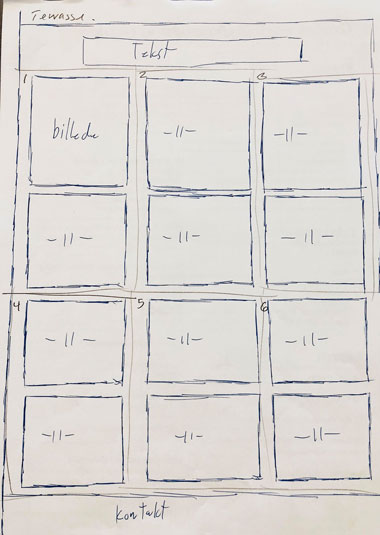 Terrasse.
Tekst
1 2 3
billede -11- -11-
-11- -11- -11-
4 5 6
-11- -11- -11-
-11- -11- -11-
kontakt